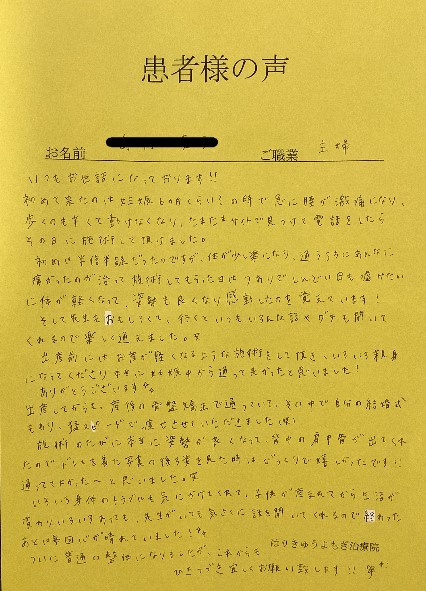 患者様の声
お名前 ご職業 主婦
いつもお世話になっております!!
初めて来たのは妊娠6ヵ月くらいの時で急に腰が激痛になり、
歩くのも辛くて動けなくなり、たまたまサイトで見つけて電話をしたら
その日に施術して頂けました。
初めは半信半疑だったのですが、体が少し楽になり、通ううちにあんなに
痛かったのが治って施術してもらった日はつわりでしんどい日も嘘みたい
に体が軽くなって、姿勢も良くなり感動したのを覚えています!
そして先生もおもしろくて、行くといつもいろんな話やグチも聞いて
くれるので楽しく通えました。
出産前にはお産が軽くなるような施術をして頂き、いろいろ親身
になってくださり本当に妊娠中から通って良かったと思いました!
ありがとうございます。
出産してからも、産後の骨盤矯正で通っていて、その中で自分の結婚式
もあり、猛スピードで痩せさせていただきました(笑)
施術のたびに本当に姿勢が良くなって、背中の肩甲骨が出てくれ
たので、ドレスを着た写真の後ろ姿を見た時はびっくりで嬉しかったです!!
通ってて良かった〜と思いました。
いろいろ身体のようすにも気にかけてくれて、子供が産まれてから生活が
変わりいろいろあっても、先生がいつも気さくに話を聞いてくれるので終わった
あとは毎回心が晴れていました!
ついに普通の整体になりましたが、これからも
はりきゅうよもぎ治療院
ひきつづき宜しくお願い致します!!